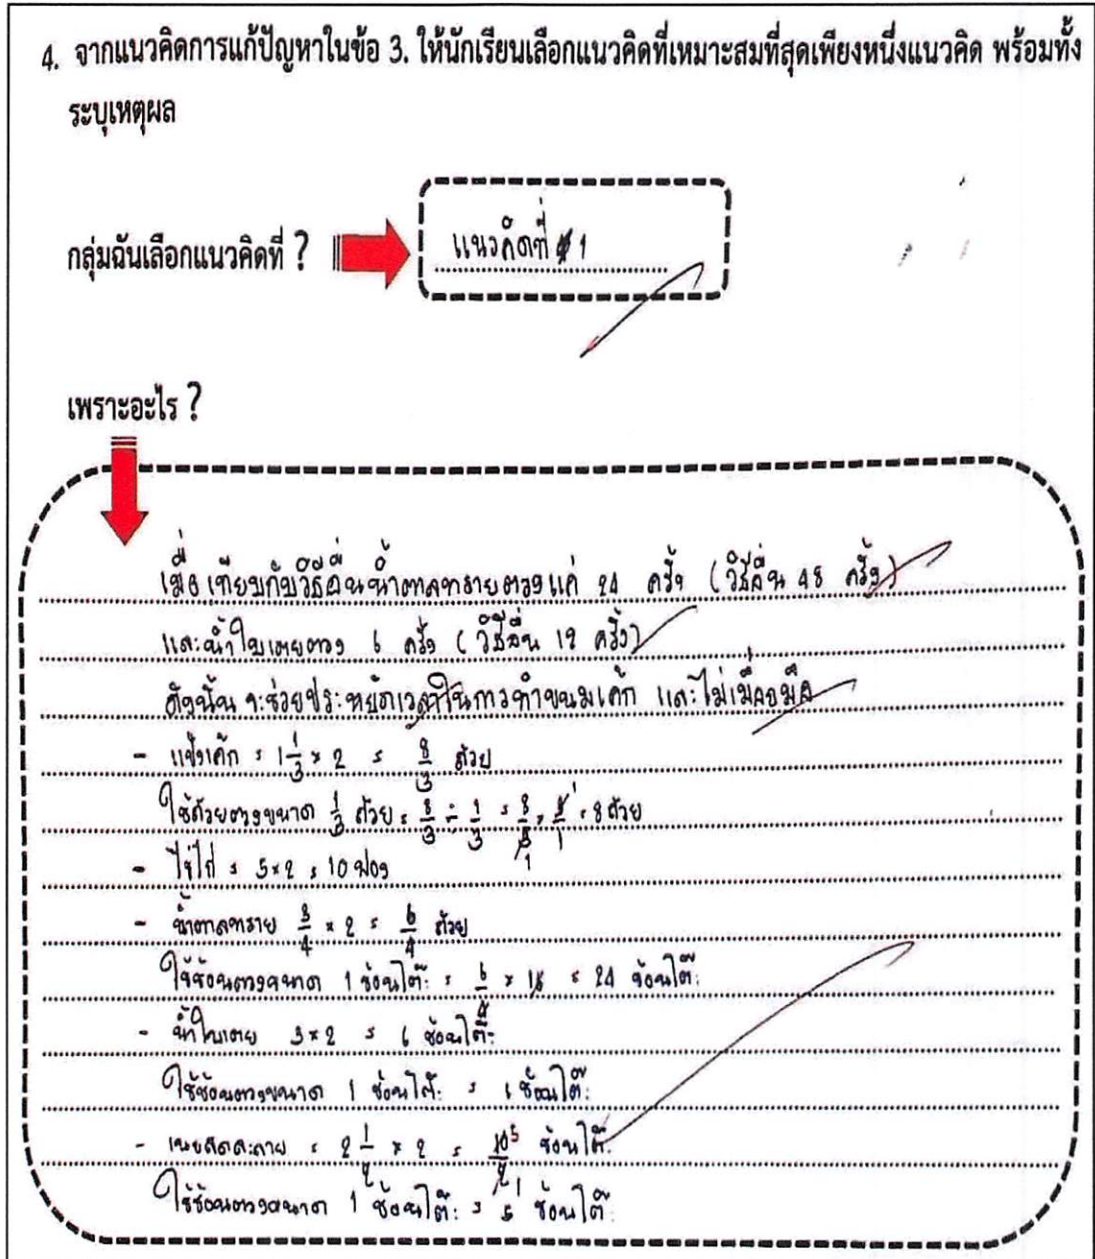 4. จากแนวคิดการแก้ปัญหาในข้อ 3. ให้นักเรียนเลือกแนวคิดที่เหมาะสมที่สุดเพียงหนึ่งแนวคิด พร้อมทั้ง
ระบุเหตุผล
กลุ่มฉันเลือกแนวคิดที่ ?
แนวคิดที่ 1
เพราะอะไร ?
เมื่อเทียบกับวิธีอื่นน้ำตาลทรายตวงแค่ 24 ครั้ง (วิธีอื่น 48 ครั้ง)
และน้ำใบเตยตวง 6 ครั้ง (วิธีอื่น 12 ครั้ง)
ดังนั้น จะช่วยประหยัดเวลาในการทำขนมเค้ก และไม่เมื่อยมือ
- แป้งเค้ก = 1 1/3 × 2 = 8/3 ถ้วย
ใช้ถ้วยตวงขนาด 1/3 ถ้วย = 8/3 ÷ 1/3 = 8/3 × 3/1 = 8 ถ้วย
- ไข่ไก่ = 5×2 = 10 ฟอง
- น้ำตาลทราย 3/4 × 2 = 6/4 ถ้วย
ใช้ช้อนตวงขนาด 1 ช้อนโต๊ะ = 6/4 × 16 = 24 ช้อนโต๊ะ
- น้ำใบเตย 3×2 = 6 ช้อนโต๊ะ
ใช้ช้อนตวงขนาด 1 ช้อนโต๊ะ = 6 ช้อนโต๊ะ
- เนยสดละลาย = 2 1/2 × 2 = 10/2 ช้อนโต๊ะ
ใช้ช้อนตวงขนาด 1 ช้อนโต๊ะ = 5 ช้อนโต๊ะ